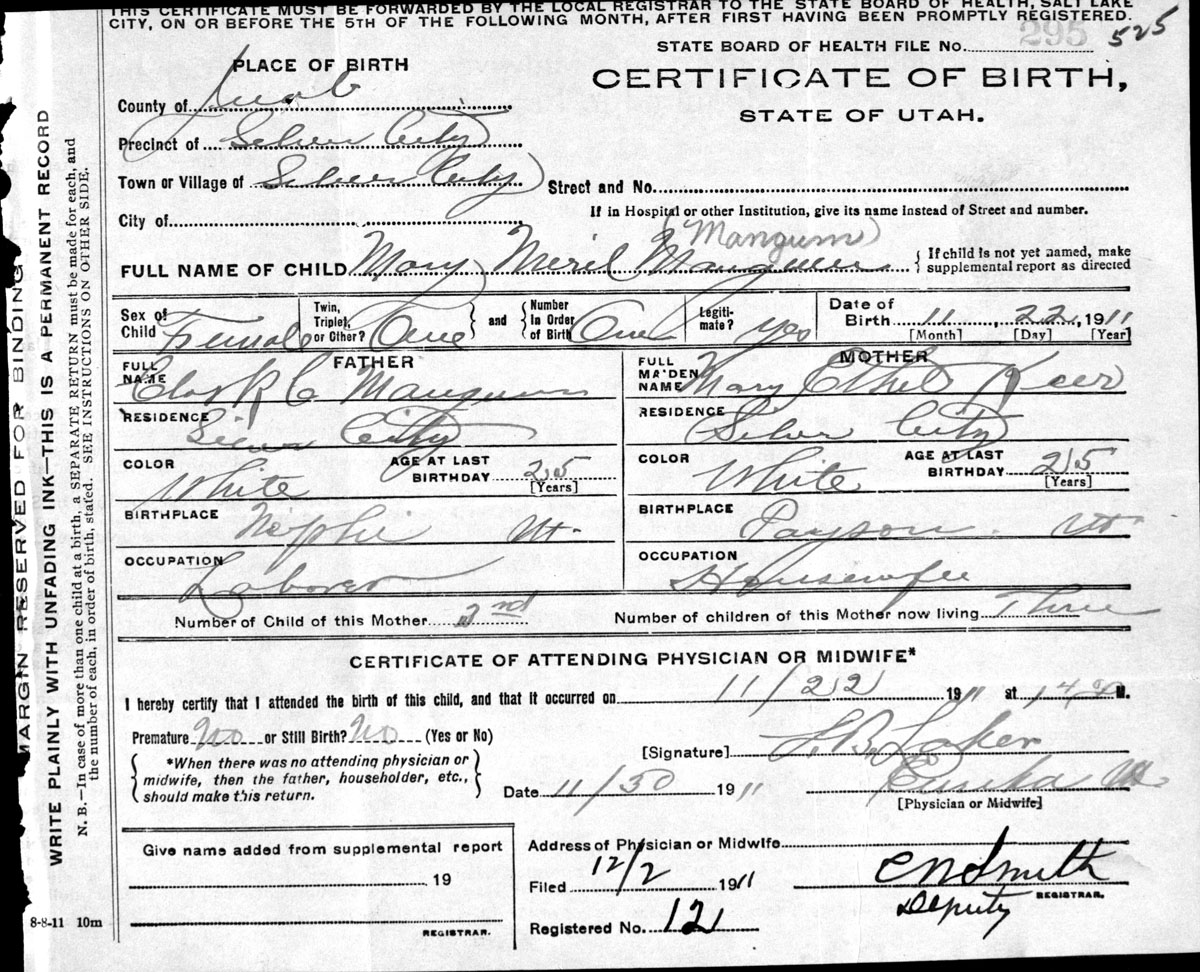 THIS CERTIFICATE MUST BE FORWARDED BY THE LOCAL REGISTRAR TO THE STATE BOARD OF HEALTH, SALT LAKE
CITY, ON OR BEFORE THE 5TH OF THE FOLLOWING MONTH, AFTER FIRST HAVING BEEN PROMPTLY REGISTERED.
STATE BOARD OF HEALTH FILE No. 295 525
PLACE OF BIRTH
CERTIFICATE OF BIRTH,
STATE OF UTAH.
County of Juab
Precinct of Silver City
Town or Village of Silver City
Street and No.
City of
If in Hospital or other Institution, give its name instead of Street and number.
(Mangum)
FULL NAME OF CHILD Mary Meril Mangum
If child is not yet named, make supplemental report as directed
Sex of Child Female
Twin, Triplet, or Other? One
and
Number In Order of Birth One
Legitimate? yes
Date of Birth 11, 22, 1911
[Month] [Day] [Year]
FATHER
FULL NAME C Mangum
RESIDENCE Silver City
COLOR White
AGE AT LAST BIRTHDAY 25
[Years]
BIRTHPLACE Nephi Ut.
OCCUPATION Laborer
MOTHER
FULL MAIDEN NAME Mary Ethel
RESIDENCE Silver City
COLOR White
AGE AT LAST BIRTHDAY 25
[Years]
BIRTHPLACE Payson. Ut
OCCUPATION Housewife
Number of Child of this Mother
Number of children of this Mother now living Three
CERTIFICATE OF ATTENDING PHYSICIAN OR MIDWIFE*
I hereby certify that I attended the birth of this child, and that it occurred on 11/22 1911 at M.
Premature No or Still Birth? No (Yes or No)
*When there was no attending physician or
midwife, then the father, householder, etc.,
should make this return.
[Signature]
Eureka Ut.
Date 11/30 1911
[Physician or Midwife]
Give name added from supplemental report
19
REGISTRAR.
Address of Physician or Midwife
Filed 12/2 1911
CN Smith
REGISTRAR.
Deputy
Registered No. 121
8-8-11 10m
MARGIN RESERVED FOR BINDING
WRITE PLAINLY WITH UNFADING INK—THIS IS A PERMANENT RECORD
N. B.—In case of more than one child at a birth, a SEPARATE RETURN must be made for each, and
the number of each, in order of birth, stated. SEE INSTRUCTIONS ON OTHER SIDE.